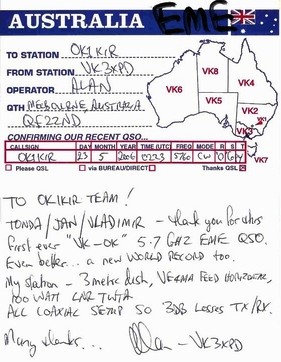 AUSTRALIA EME
TO STATION OK1KIR
FROM STATION VK3XPD
OPERATOR ALAN
QTH MELBOURNE, AUSTRALIA
QF22ND
VK8
VK6
VK4
VK5
VK2
VK1
VK3
VK7
CONFIRMING OUR RECENT QSO...
CALLSIGN DAY MONTH YEAR TIME (UTC) FREQ MODE R S T
OK1KIR 23 5 2006 0223 5760 CW "O"
Please QSL via BUREAU/DIRECT Thanks QSL
TO OK1KIR TEAM!
TONDA/JAN/VLADIMIR - thank you for this
first ever "VK-OK" 5.7 GHZ EME QSO.
Even better... a new WORLD RECORD too.
My station - 3 metre dish, VE4MA FEED HORIZONTAL
100 WATT LNR TWTA
ALL COAXIAL SETUP SO 3DB LOSSES TX/RX.
Many thanks... Alan - VK3XPD